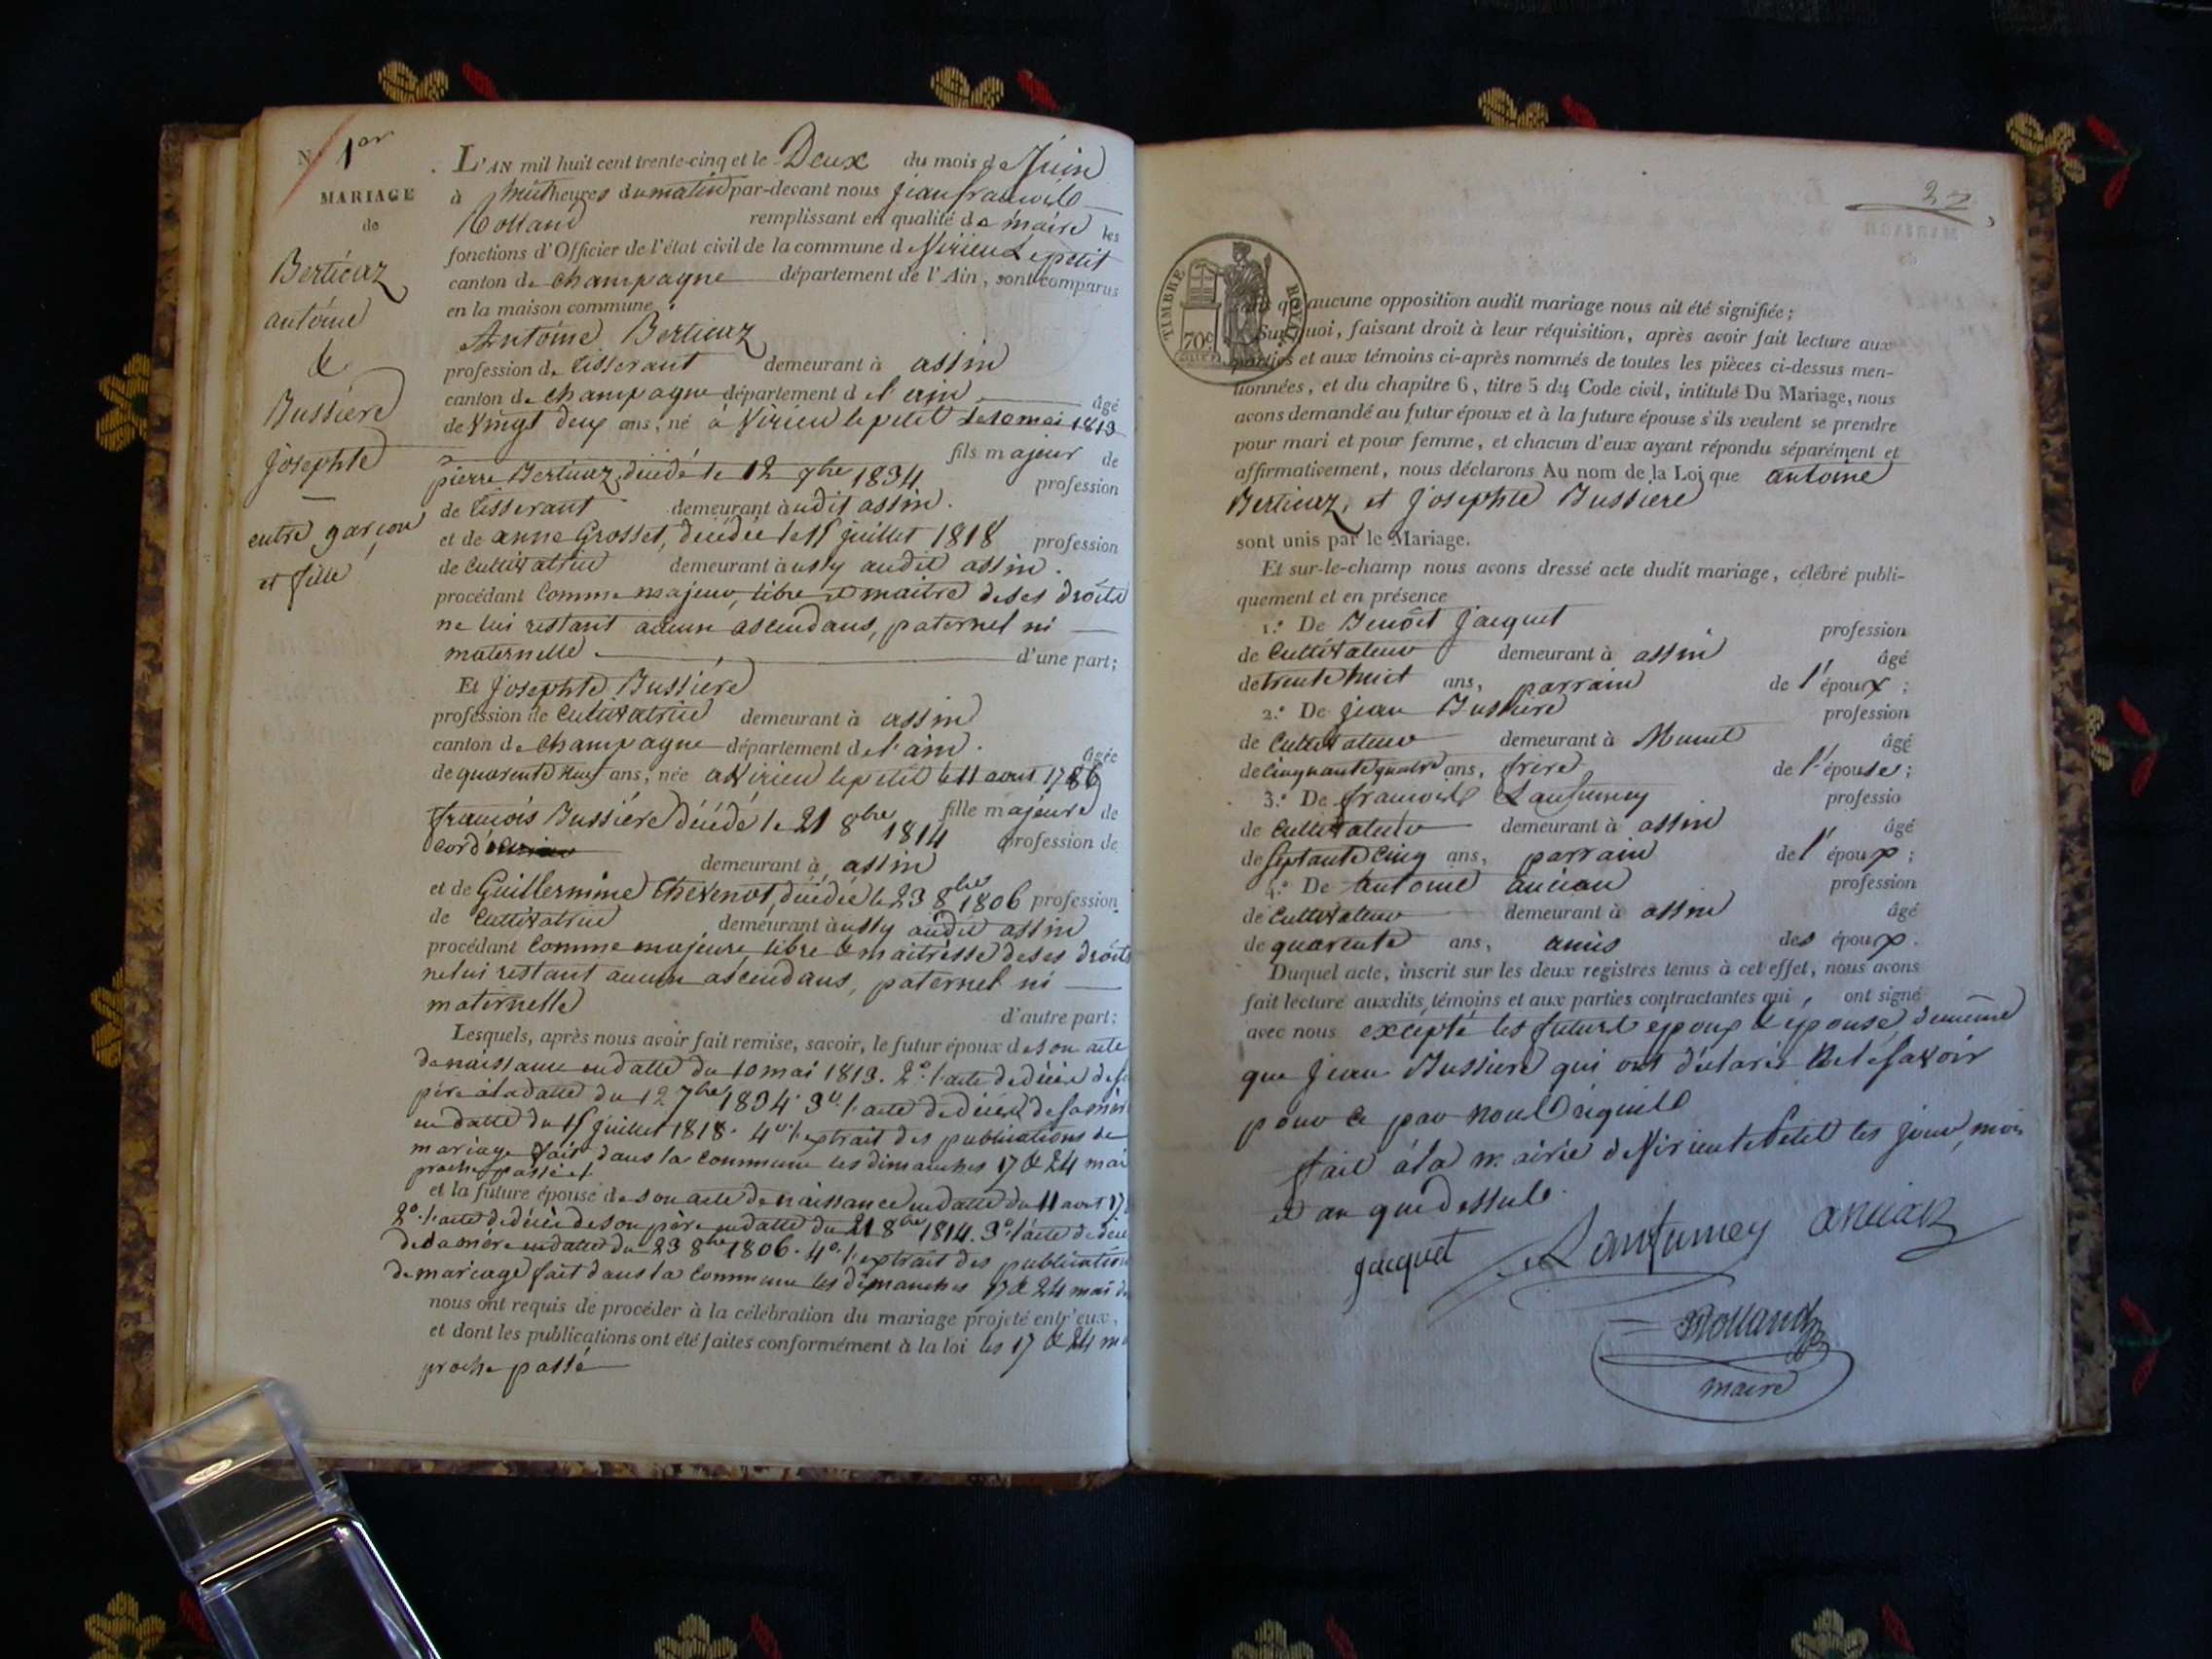 N.o 1er
MARIAGE
de
Berticaz
antoine
&
Bussiere
Josephte
entre garçon
et fille
L'AN mil huit cent trente-cinq et le Deux du mois de Juin
à huit heures du matin par-devant nous jean françois
Rolland remplissant en qualité de maire les
fonctions d'Officier de l'état civil de la commune de Virieu Lepetit
canton de champagne département de l'Ain, sont comparus
en la maison commune
Antoine Berticaz
profession de tisserant demeurant à assin
canton de champagne département de l'ain âgé
de vingt deux ans, né à Virieu le petit le 10 mai 1813
fils majeur de
pierre Berticaz, décédé le 12 7bre 1834 profession
de tisserant demeurant audit assin.
et de anne Grosset, décédée le 15 juillet 1818 profession
de Cultivatrice demeurant aussy audit assin.
procédant Comme majeur, libre et maitre de ses droits
ne lui restant aucun ascendans, paternel ni
maternelle d'une part;
Et Josephte Bussiére
profession de Cultivatrice demeurant à assin
canton de champagne département de l'ain. âgée
de quarente neuf ans, née a Virieu lepetit le 11 aout 1786
fille majeure de
françois Bussiére décédé le 21 8bre 1814 profession de
demeurant à assin
et de Guillermine Thevenot, décédée le 23 8bre 1806 profession
de Cultivatrice demeurant aussy audit assin
procédant Comme majeure, libre & maitresse de ses droits
ne lui restant aucun ascendans, paternel ni
maternelle
d'autre part;
Lesquels, après nous avoir fait remise, savoir, le futur époux de son acte
de naissance en datte du 10 mai 1813. 2o. l'acte de décés de
père à la datte du 12 7bre 1834. 3o. l'acte de décés de sa mère
en datte du 15 juillet 1818. 4o. l'extrait des publications de
mariage fait dans la Commune les dimanches 17 & 24 mai
proche passé et
et la future épouse de son acte de naissance en datte du 11 aout
2o. l'acte de décés de son père en datte du 21 8bre 1814. 3o. l'acte de
de sa mère en datte du 23 8bre 1806. 4o. l'extrait des publications
de mariage fait dans la Commune les dimanches 17 & 24 mai
nous ont requis de procéder à la célébration du mariage projeté entr'eux,
et dont les publications ont été faites conformément à la loi les 17 & 24
proche passé
TIMBRE ROYAL
70c
qu'aucune opposition audit mariage nous ait été signifiée;
Sur quoi, faisant droit à leur réquisition, après avoir fait lecture aux
parties et aux témoins ci-après nommés de toutes les pièces ci-dessus men-
tionnées, et du chapitre 6, titre 5 du Code civil, intitulé Du Mariage, nous
avons demandé au futur époux et à la future épouse s'ils veulent se prendre
pour mari et pour femme, et chacun d'eux ayant répondu séparément et
affirmativement, nous déclarons Au nom de la Loi que antoine
Berticaz, et Josephte Bussiere
sont unis par le Mariage.
Et sur-le-champ nous avons dressé acte dudit mariage, célébré publi-
quement et en présence
1.o De Benoît Jacquet profession
de Cultivateur demeurant à assin âgé
de trente huit ans, parrain de l'époux;
2.o De jean Bussiere profession
de Cultivateur demeurant à âgé
de Cinquante quatre ans, frère de l'épouse;
3.o De françois Lanfumey professio
de Cultivateur demeurant à assin âgé
de Septante Cinq ans, parrain de l'époux;
4.o De antoine ancian profession
de Cultivateur demeurant à assin âgé
de quarente ans, amis des époux.
Duquel acte, inscrit sur les deux registres tenus à cet effet, nous avons
fait lecture auxdits témoins et aux parties contractantes qui, ont signé
avec nous excépté les futurs epoux & epouse, demême
que Jean Bussiere qui ont déclarés ne le savoir
pour ce par nous réquis
fait à la mairie de Virieu le Petit les jour, mois
et an que dessus.
Jacquet Lanfumey ancian
Rolland
maire